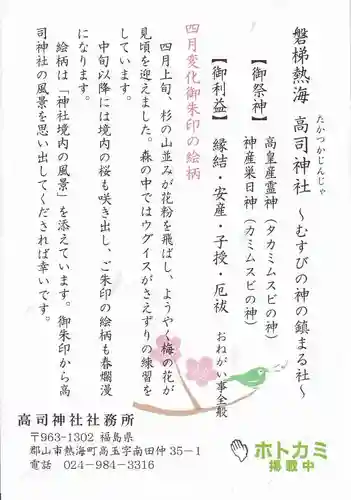 磐梯熱海 高司神社 ～むすびの神の鎮まる社～
たかつかじんじゃ
【御祭神】 高皇産霊神（タカミムスビの神）
神産巣日神（カミムスビの神）
【御利益】 縁結・安産・子授・厄祓 おねがい事全般
四月変化御朱印の絵柄
四月上旬、杉の山並みが花粉を飛ばし、ようやく梅の花が
見頃を迎えました。森の中ではウグイスがさえずりの練習を
しています。
中旬以降には境内の桜も咲き出し、ご朱印の絵柄も春爛漫
になります。
絵柄は「神社境内の風景」を添えています。御朱印から高
司神社の風景を思い出してくだされば幸いです。
高司神社社務所
〒963-1302 福島県
郡山市熱海町高玉字南田仲35－1
電話 024-984-3316
ホトカミ
掲載中